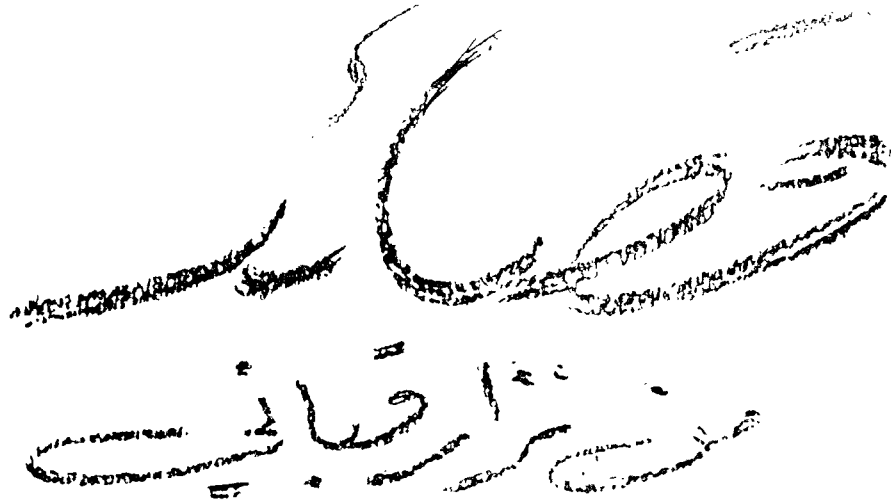 قصائد
من نزار قباني